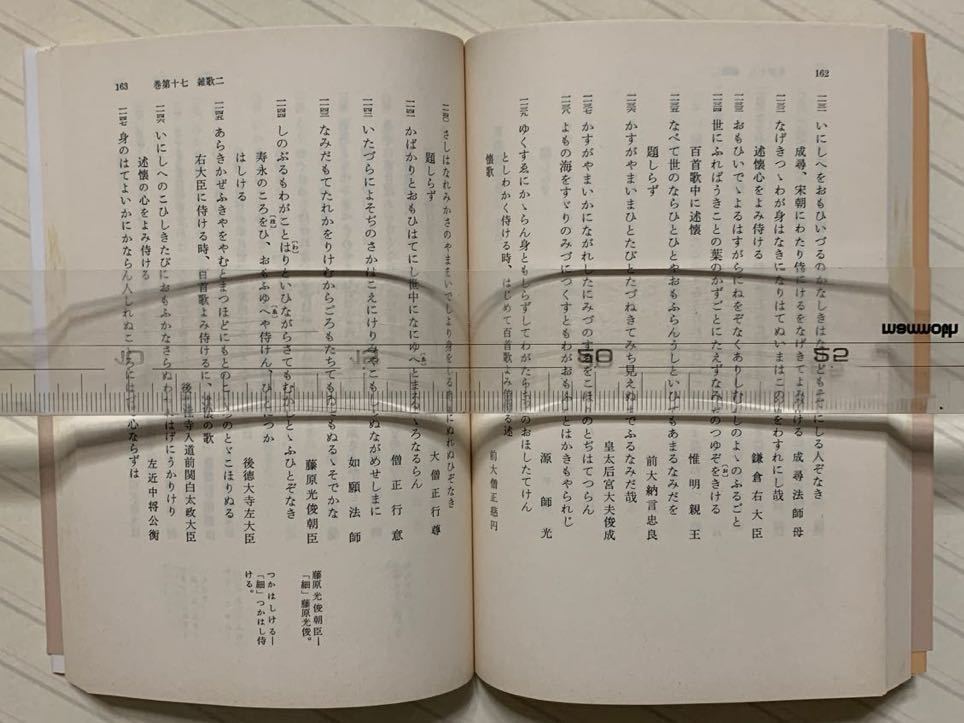 162
いにしへをおもひいづるのかなしきはな
しる人ぞなき
成尋、宋朝にわたり侍にけるをなげきてよみ侍ける 成尋法師母
なげきつゝわが身はなきになりはてぬいまはこの
をわすれにし哉
述懐心をよみ侍ける 鎌倉右大臣
おもひいでゝよるはすがらにねをぞなくありしむ
のよゝのふるごと
百首歌中に述懐 惟明親王
世にふればうきことの葉のかずごとにたえずなみだのつゆぞをきける
(お)
題しらず 前大納言忠良
なべて世のならひとひとやおもふらんうしといひてもあまるなみだを
皇太后宮大夫俊成
かすがやまいかにながれしたにみづの
をこほりのとぢはてつらん
かすがやまいまひとたびとたづねきてみち見えぬまでふるなみだ哉
源師光
よもの海をすゞりのみづにつくすともわがおもふことはかきもやられじ
ゆくすゑにかゝらん身ともしらずしてわがたらちねのおほしたてけん
としわかく侍る時、はじめて百首歌よみ侍
る述懐歌 前大僧正慈円
163 巻第十七 雑歌二
さしはなれみかさのやまをいでしより身をしるあめにぬれぬひぞなき
題しらず 大僧正行尊
かばかりとおもひはてにし世中になにゆへとまる
ころなるらん
(ゑ)
僧正行意
いたづらによそぢのさかはこえにけりみやこもし
ぬながめせしまに
如願法師
なみだもてたれかをりけむからごろもたちてもゐてもぬるゝそでかな
藤原光俊朝臣
しのぶるもわがことはりといひながらさてもむかしとゝふひとぞなき
(わ)
寿永のころをひ、おもふゆへや侍けん、ひとにつかはしける 後徳大寺左大臣
(ほ)
(ゑ)
あらきかぜふきやをやむとまつほどにもとのこ
のとゞこほりぬる
右大臣に侍ける時、百首歌よみ侍けるに、述懐の歌
後法性寺入道前関白太政大臣
いにしへのこひしきたびにおもふかなさらぬわかれはげにうかりけり
述懐の心をよみ侍ける 左近中将公衡
身のはてよいかにかならん人しれぬこゝろにはづる心ならずは
藤原光俊朝臣―
「細」藤原光俊。
つかはしける―
「細」つかはし侍
ける。
mammoth
50
52